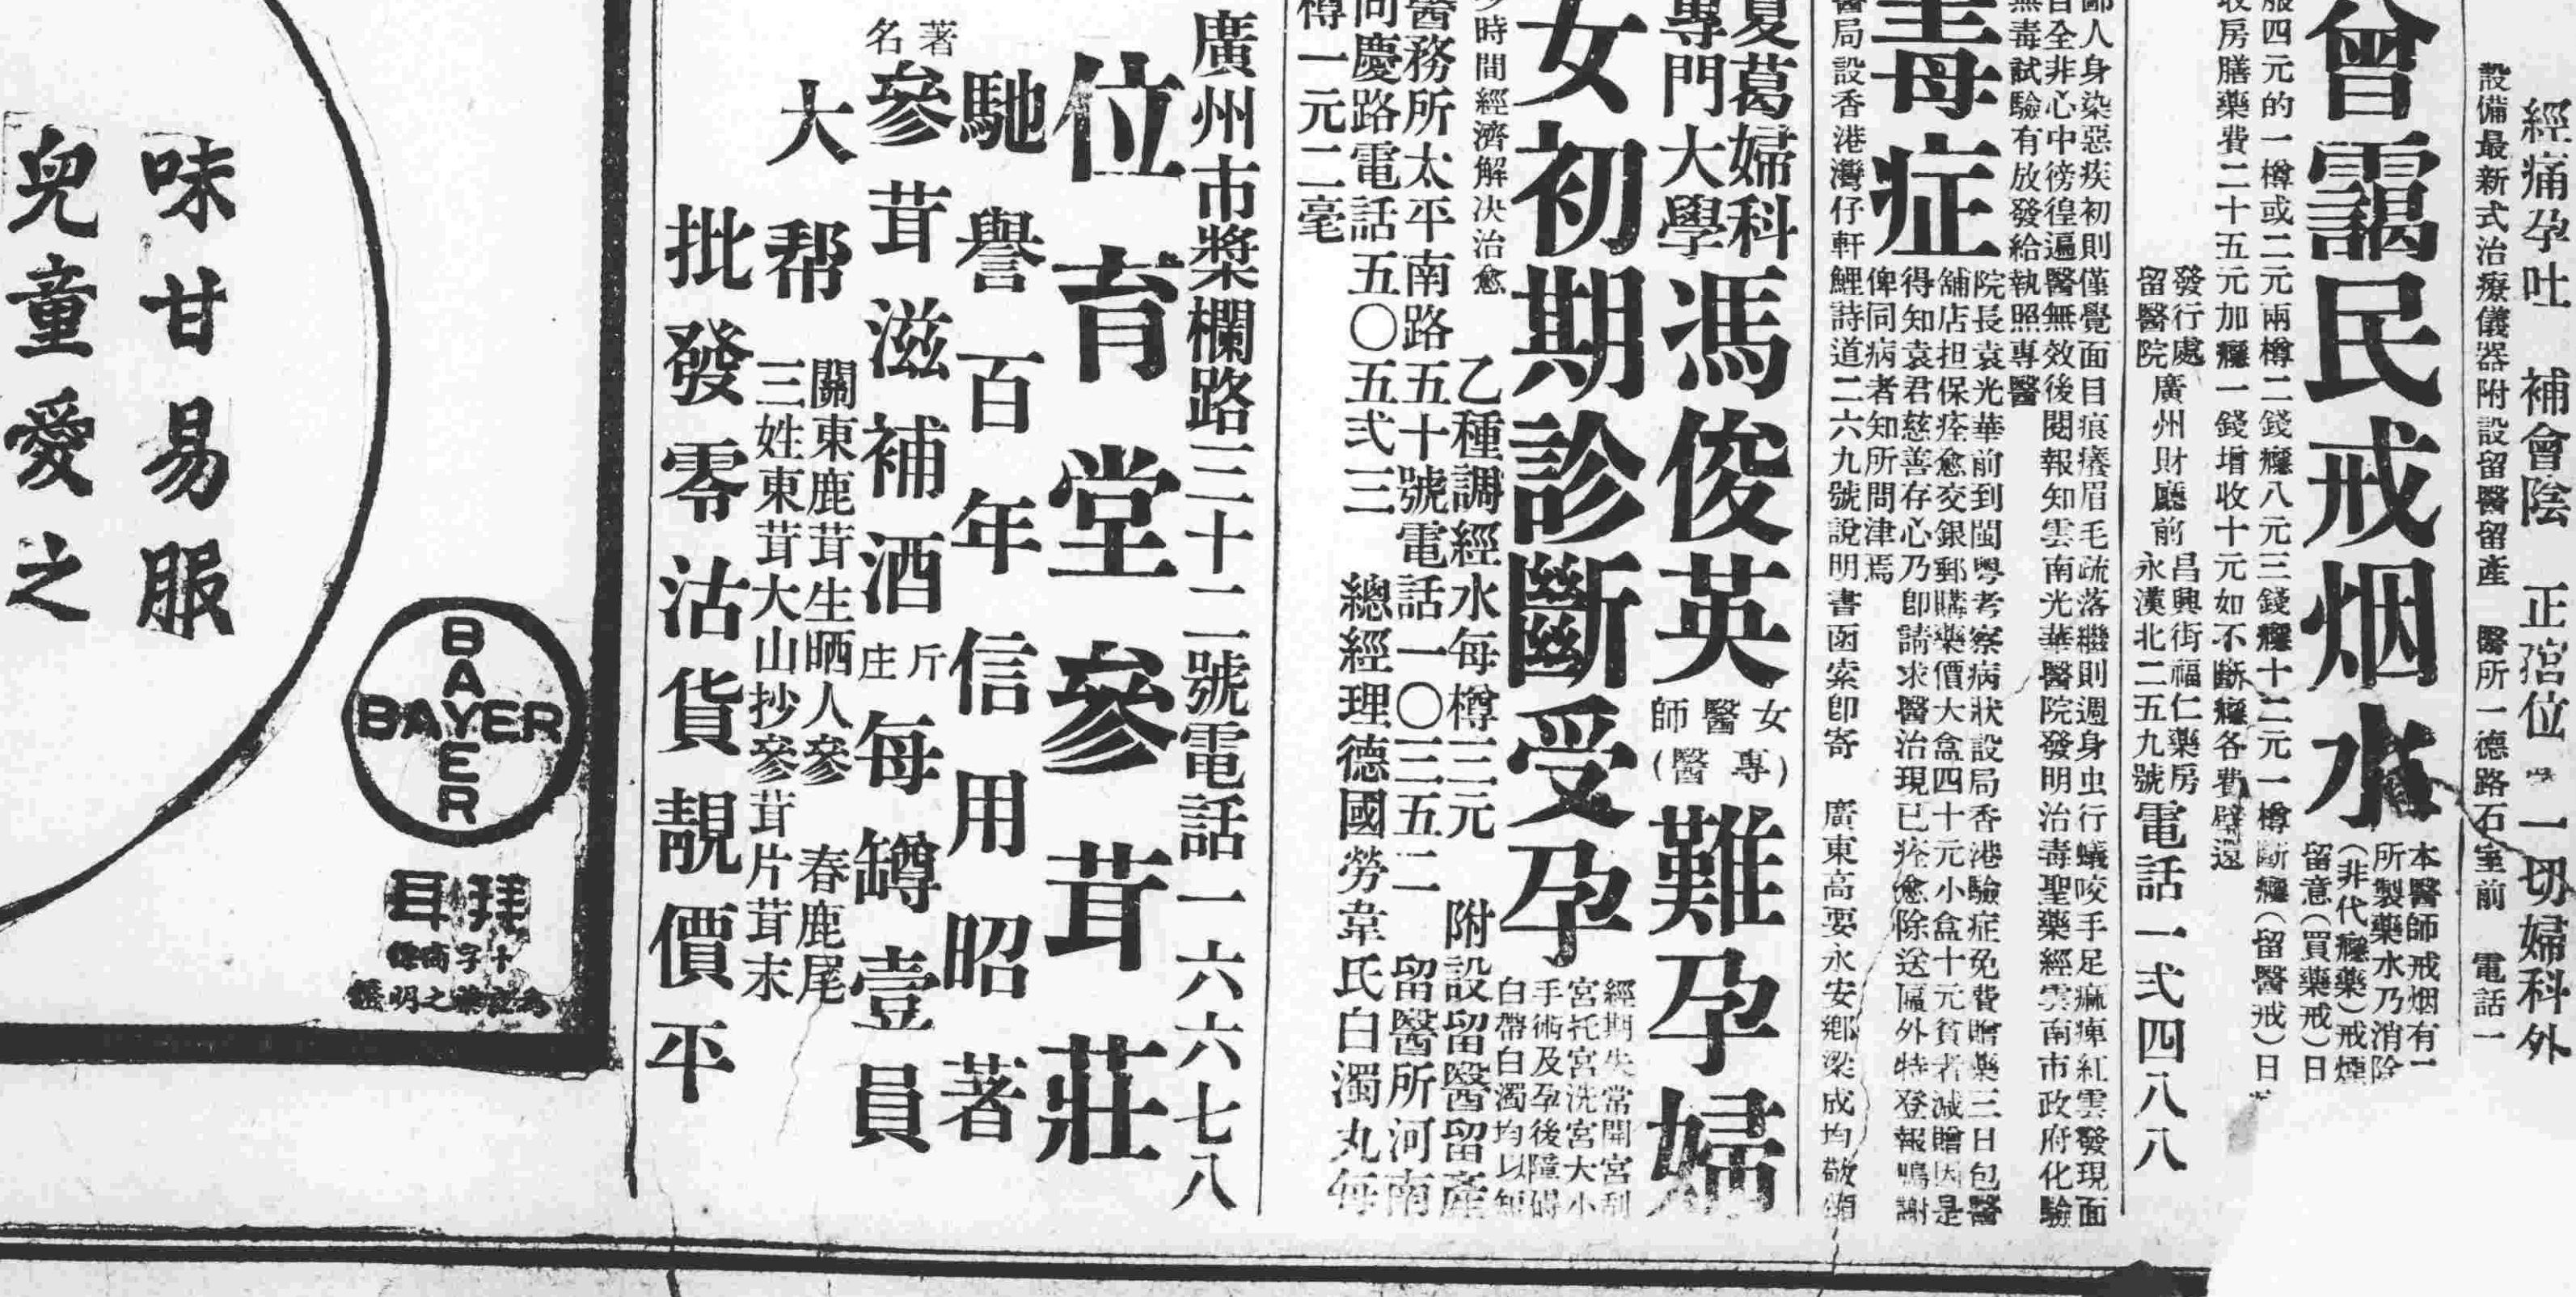 經痛孕吐 補會陰 正宮位 一切婦科外
設備最新式治療儀器附設留醫留產 醫所一德路石室前 電話一
曾靄民戒烟水
本醫師戒烟有二
所製藥水乃消除
(非代癮藥)戒煙
留意(買藥戒)日
服四元的一樽或二元兩樽二錢癮八元三錢癮十二元一樽斷癮(留醫戒)日
收房膳藥費二十五元加癮一錢增收十元如不斷癮各費璧還
發行處
留醫院
廣州財廳前
昌興街福仁藥房
永漢北二五九號
電話一弍四八八
鄙人身染惡疾初則僅覺面目痕癢眉毛疏落繼則週身虫行蟻咬手足麻痺紅雲發現面
目全非心中徬徨遍醫無效後閱報知雲南光華醫院發明治毒聖藥經雲南市政府化驗
無毒試驗有放發給執照專醫
毒症
院長袁光華前到閩粵考察病狀設局香港驗症免費贈藥三日包醫
舖店担保痊愈交銀郵購藥價大盒四十元小盒十元貧者減贈因是
得知袁君慈善存心乃卽請求醫治現已痊愈除送匾外特登報鳴謝
俾同病者知所問津焉
醫局設香港灣仔軒鯉詩道二六九號說明書函索卽寄 廣東高要永安鄉梁成均敬
葛婦科
專門大學
馮俊英
女醫師
(專醫)
難孕婦
女初期診斷受孕
經期失常開宮刮
宮托宮洗宮大小
手術及孕後障碍
白帶白濁均以短
時間經濟解决治愈
乙種調經水每樽三元 附設留醫留產
醫務所太平南路五十號電話一〇三五二 留醫所河南
同慶路電話五〇五弍三 總經理德國勞韋氏白濁丸每
樽一元二毫
廣州市槳欄路三十二號電話一六六七八
位育堂參茸莊
馳譽百年信用昭著
著名
參茸滋補酒
斤庄
每罇壹員
大帮
關東鹿茸生晒人參 春鹿尾
三姓東茸大山抄參茸片茸末
批發零沽貨靚價平
味甘易服
兒童愛之
BAYER
BAYER
拜耳
十字商標